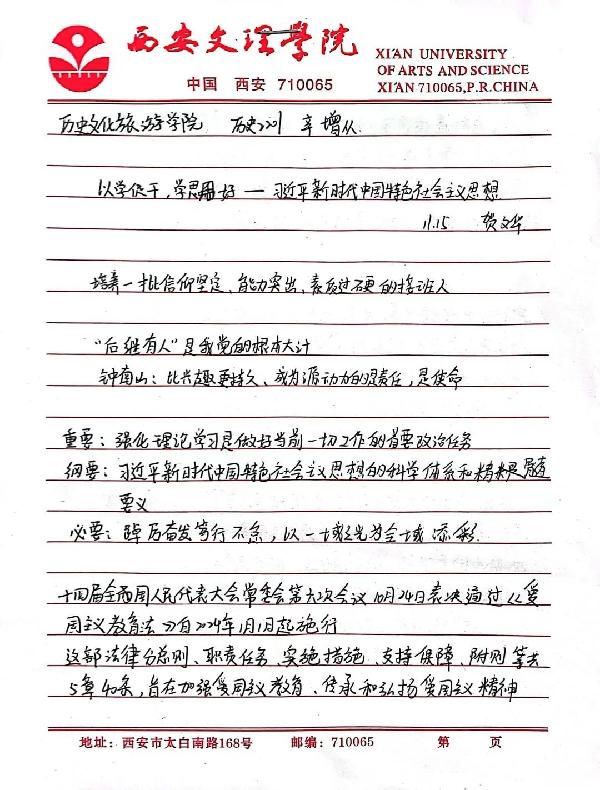 西安文理学院
中国 西安 710065
XI'AN UNIVERSITY
OF ARTS AND SCIENCE
XI'AN 710065, P.R.CHINA
历史文化旅游学院 历史2201 辛增从
以学促干,学思用好 — 习近平新时代中国特色社会主义思想
11.15 贺文华
培养一批信仰坚定、能力突出、素质过硬的接班人
“后继有人”是我党的根本大计
钟南山:比兴趣更持久、成为源动力的是责任,是使命
重要:强化理论学习是做好当前一切工作的首要政治任务
纲要:习近平新时代中国特色社会主义思想的科学体系和精神
要义
必要:踔厉奋发笃行不怠,以一域之光为全域添彩.
十四届全国人民代表大会常委会第六次会议10月24日表决通过《爱
国主义教育法》自2024年1月1日起施行
这部法律分总则、职责任务、实施措施、支持保障、附则等共
5章40条,旨在加强爱国主义教育、传承和弘扬爱国主义精神
地址:西安市太白南路168号 邮编:710065 第 页